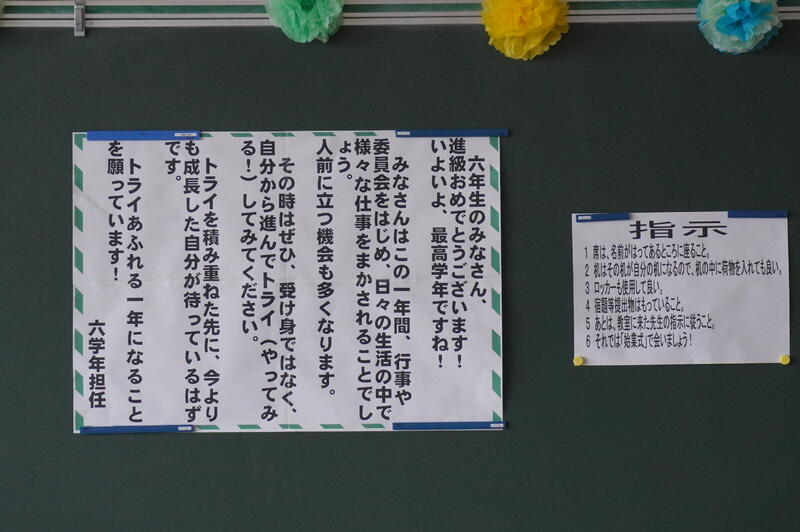 六年生のみなさん、
進級おめでとうございます！
いよいよ、最高学年ですね！
みなさんはこの一年間、行事や
委員会をはじめ、日々の生活の中で
様々な仕事をまかされることでし
ょう。
人前に立つ機会も多くなります。
その時はぜひ、受け身ではなく、
自分から進んでトライ（やってみ
る！）してみてください。
トライを積み重ねた先に、今より
も成長した自分が待っているはず
です。
トライあふれる一年になること
を願っています！
六学年担任
指示
1 席は、名前がはってあるところに座ること。
2 机はその机が自分の机になるので、机の中に荷物を入れても良い。
3 ロッカーも使用して良い。
4 宿題等提出物はもっていること。
5 あとは、教室に来た先生の指示に従うこと。
6 それでは「始業式」で会いましょう！